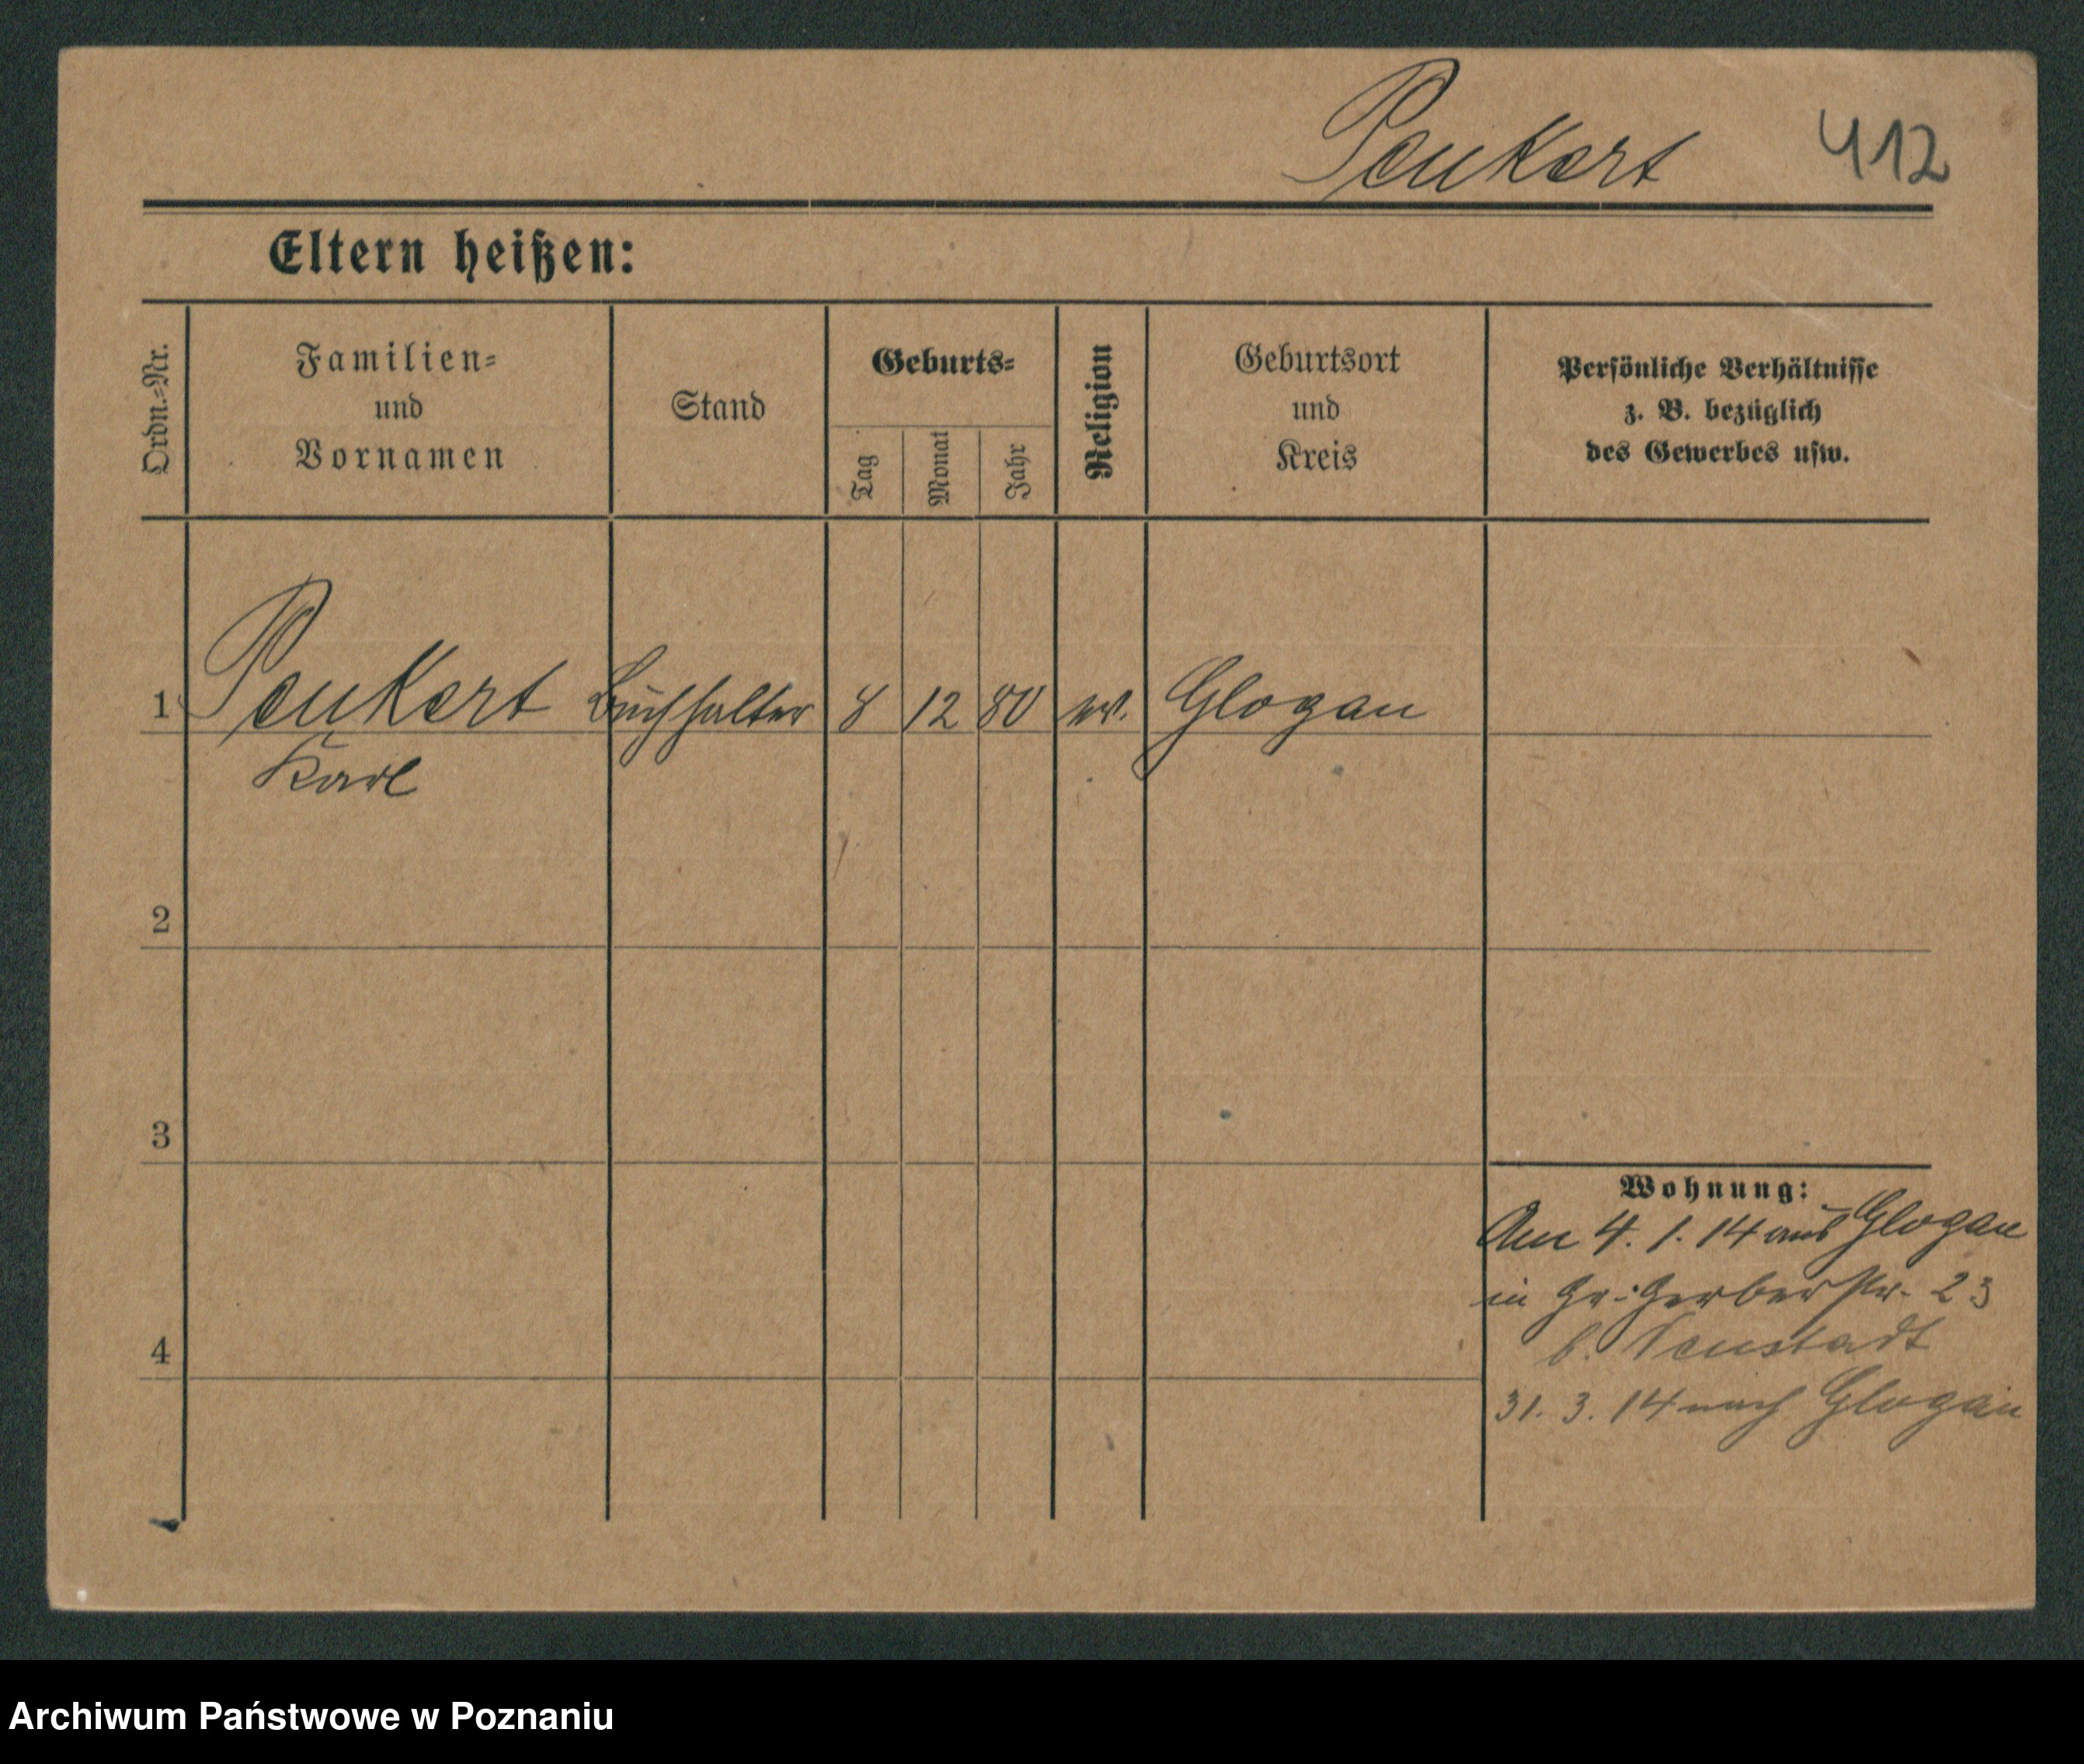 Peukert 412
Eltern heißen:
Ordn.-Nr.
Familien-
und
Vornamen
Stand
Geburts-
Tag
Monat
Jahr
Religion
Geburtsort
und
Kreis
Persönliche Verhältnisse
z. B. bezüglich
des Gewerbes usw.
1 Peukert Buchhalter 8 12 80 ev. Glogau
Karl
2
3
4
Wohnung:
Am 4. 1. 14 aus Glogau
in Gr. Gerberstr. 23
b. Neustadt
31. 3. 14 nach Glogau
Archiwum Państwowe w Poznaniu